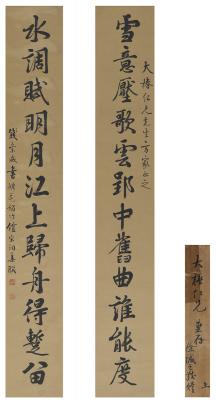 大椿仁兄先生方家正之
雪意壓歌雲郢中舊曲誰能度
水調賦明月江上歸舟得蹔留
錢崇威書
大椿仁兄